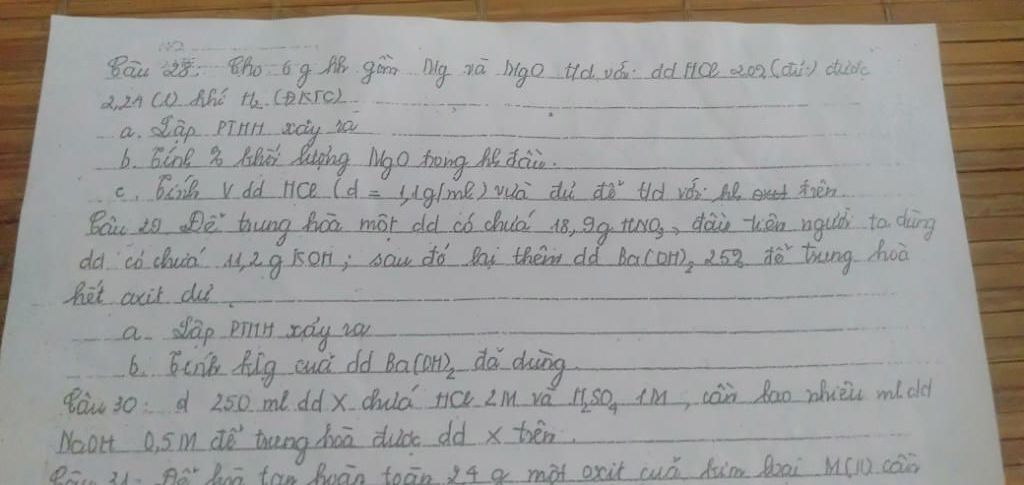 Câu 28: Cho 6 g hh gồm Mg và MgO t/d với dd HCl 20% (đủ) được
2,24 (l) khí H₂ (ĐKTC)
a. Lập PTHH xảy ra
b. Tính % khối lượng MgO trong hh đầu.
c. Tính V dd HCl (d = 1,1g/ml) vừa đủ để t/d với hh trên.
Câu 29 Để trung hoà một dd có chứa 18,9g HNO₃, đầu tiên người ta dùng
dd có chứa 11,2 g KOH; sau đó lại thêm dd Ba(OH)₂ 25% để trung hoà
hết axit dư
a. Lập PTHH xảy ra
b. Tính klg của dd Ba(OH)₂ đã dùng
Câu 30: 250 ml dd X chứa HCl 2M và H₂SO₄ 1M, cần bao nhiêu ml dd
NaOH 0,5M để trung hoà được dd X trên.
Câu 31: Để hoà tan hoàn toàn 2,4 g một oxit của kim loại M(II) cần